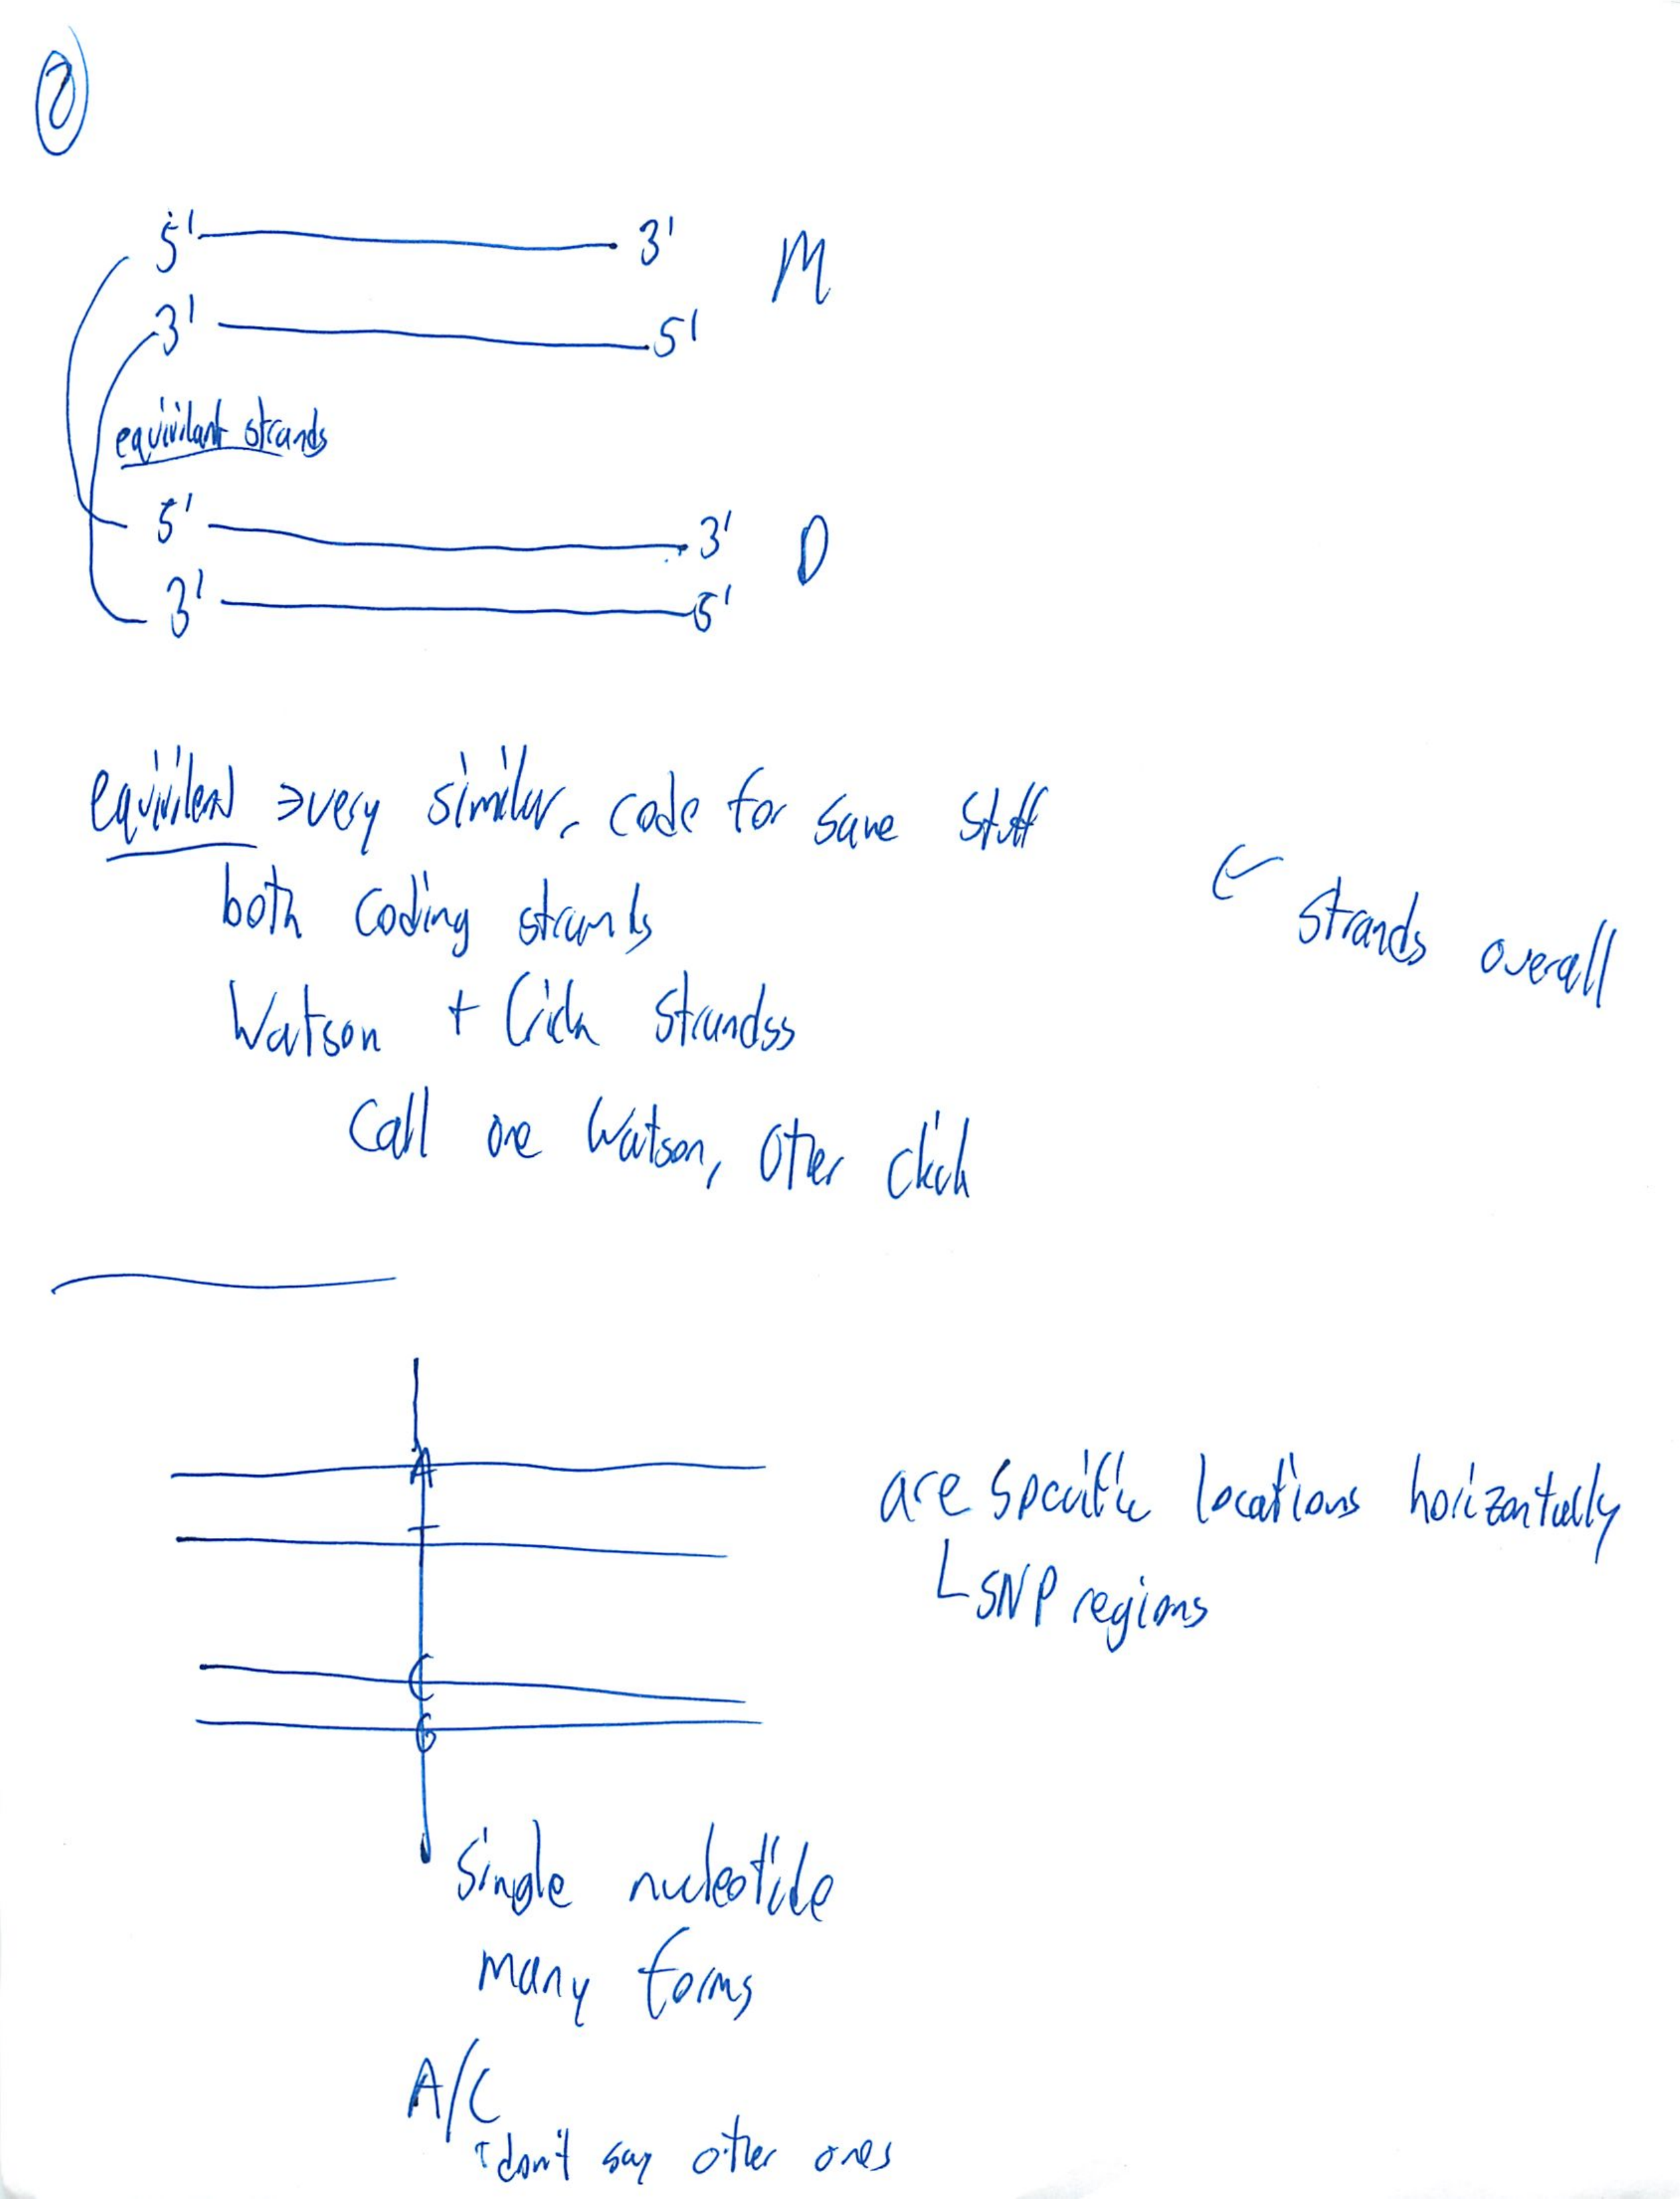 5' 3' M
3' 5'
equivilant strands
5' 3' D
3' 5'
very similar, code for same stuff
both coding strands
strands overall
Watson + Crick strandss
Call one Watson, other
A
T
C
G
are specific locations horizontally
SNP regions
single nucleotide
many forms
A/C
don't say other ones